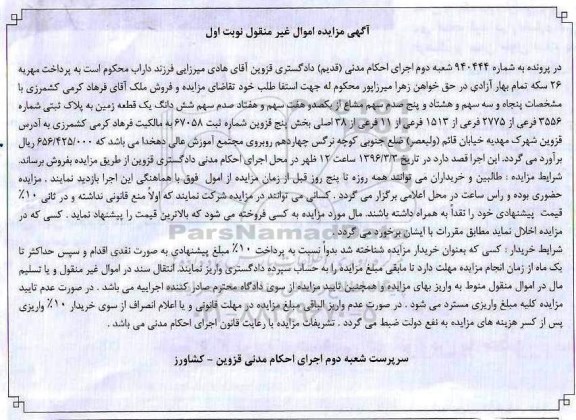 آگهی مزایده اموال غیر منقول نوبت اول
در پرونده به شماره ۹۴۰۴۴۴ شعبه دوم اجرای احکام مدنی (قدیم) دادگستری قزوین آقای هادی میرزایی فرزند داراب محکوم است به پرداخت مهریه
۲۶ سکه تمام بهار آزادی در حق خواهن زهرا میرزاپور محکوم له جهت استفا طلب خود تقاضای مزایده و فروش ملک آقای فرهاد کرمی کشمرزی با
مشخصات پنجاه و سه سهم و هشتاد و پنج صدم سهم مشاع از یکصدو هفت سهم و هفتاد صدم سهم شش دانگ یک قطعه زمین به پلاک ثبتی شماره
۳۵۵۶ فرعی از ۲۷۷۵ فرعی از ۱۵۱۳ فرعی از ۱۱ فرعی از ۳۸ اصلی بخش پنج قزوین شماره ثبت ۶۷۰۵۸ به مالکیت فرهاد کرمی کشمرزی به آدرس
قزوین شهرک مهدیه خیابان قائم (ولیعصر) ضلع جنوبی کوچه نرگس چهاردهم روبروی مجتمع آموزش عالی دهخدا می باشد که ۶۵۶/۴۲۵/۰۰۰ ریال
برآورد می گردد. این اجرا قصد دارد در تاریخ ۱۳۹۶/۳/۳ ساعت ۱۲ ظهر در محل اجرای احکام مدنی دادگستری قزوین از طریق مزایده بفروش برساند.
شرایط مزایده : طالبین و خریداران می توانند همه روزه تا پنج روز قبل از زمان مزایده از اموال فوق با هماهنگی این اجرا بازدید نمایند . مزایده
حضوری بوده و راس ساعت در محل اعلامی برگزار می گردد . کسانی می توانند در مزایده شرکت نمایند که اولاً منع قانونی نداشته و در ثانی ۱۰٪
قیمت پیشنهادی خود را نقداً به همراه داشته باشند. مال مورد مزایده به کسی فروخته می شود که بالاترین قیمت را پیشنهاد نماید . کسی که در
مزایده اخلال نماید مطابق مقررات با ایشان برخورد می گردد.
شرایط خریدار : کسی که بعنوان خریدار مزایده شناخته شد بدواً نسبت به پرداخت ۱۰٪ مبلغ پیشنهادی به صورت نقدی اقدام و سپس حداکثر تا
یک ماه از زمان انجام مزایده مهلت دارد تا مابقی مبلغ مزایده را به حساب سپرده دادگستری واریز نمایند. انتقال سند در اموال غیر منقول و یا تسلیم
مال در اموال منقول منوط به واریز بهای مزایده و همچنین تایید مزایده از سوی دادگاه محترم صادر کننده اجراییه می باشد . در صورت عدم تایید
مزایده کلیه مبلغ واریزی مسترد می شود . در صورت عدم واریز الباقی مبلغ مزایده در مهلت قانونی و یا اعلام انصراف از سوی خریدار ۱۰٪ واریزی
پس از کسر هزینه های مزایده به نفع دولت ضبط می گردد . تشریفات مزایده با رعایت قانون اجرای احکام مدنی می باشد .
سرپرست شعبه دوم اجرای احکام مدنی قزوین - کشاورز